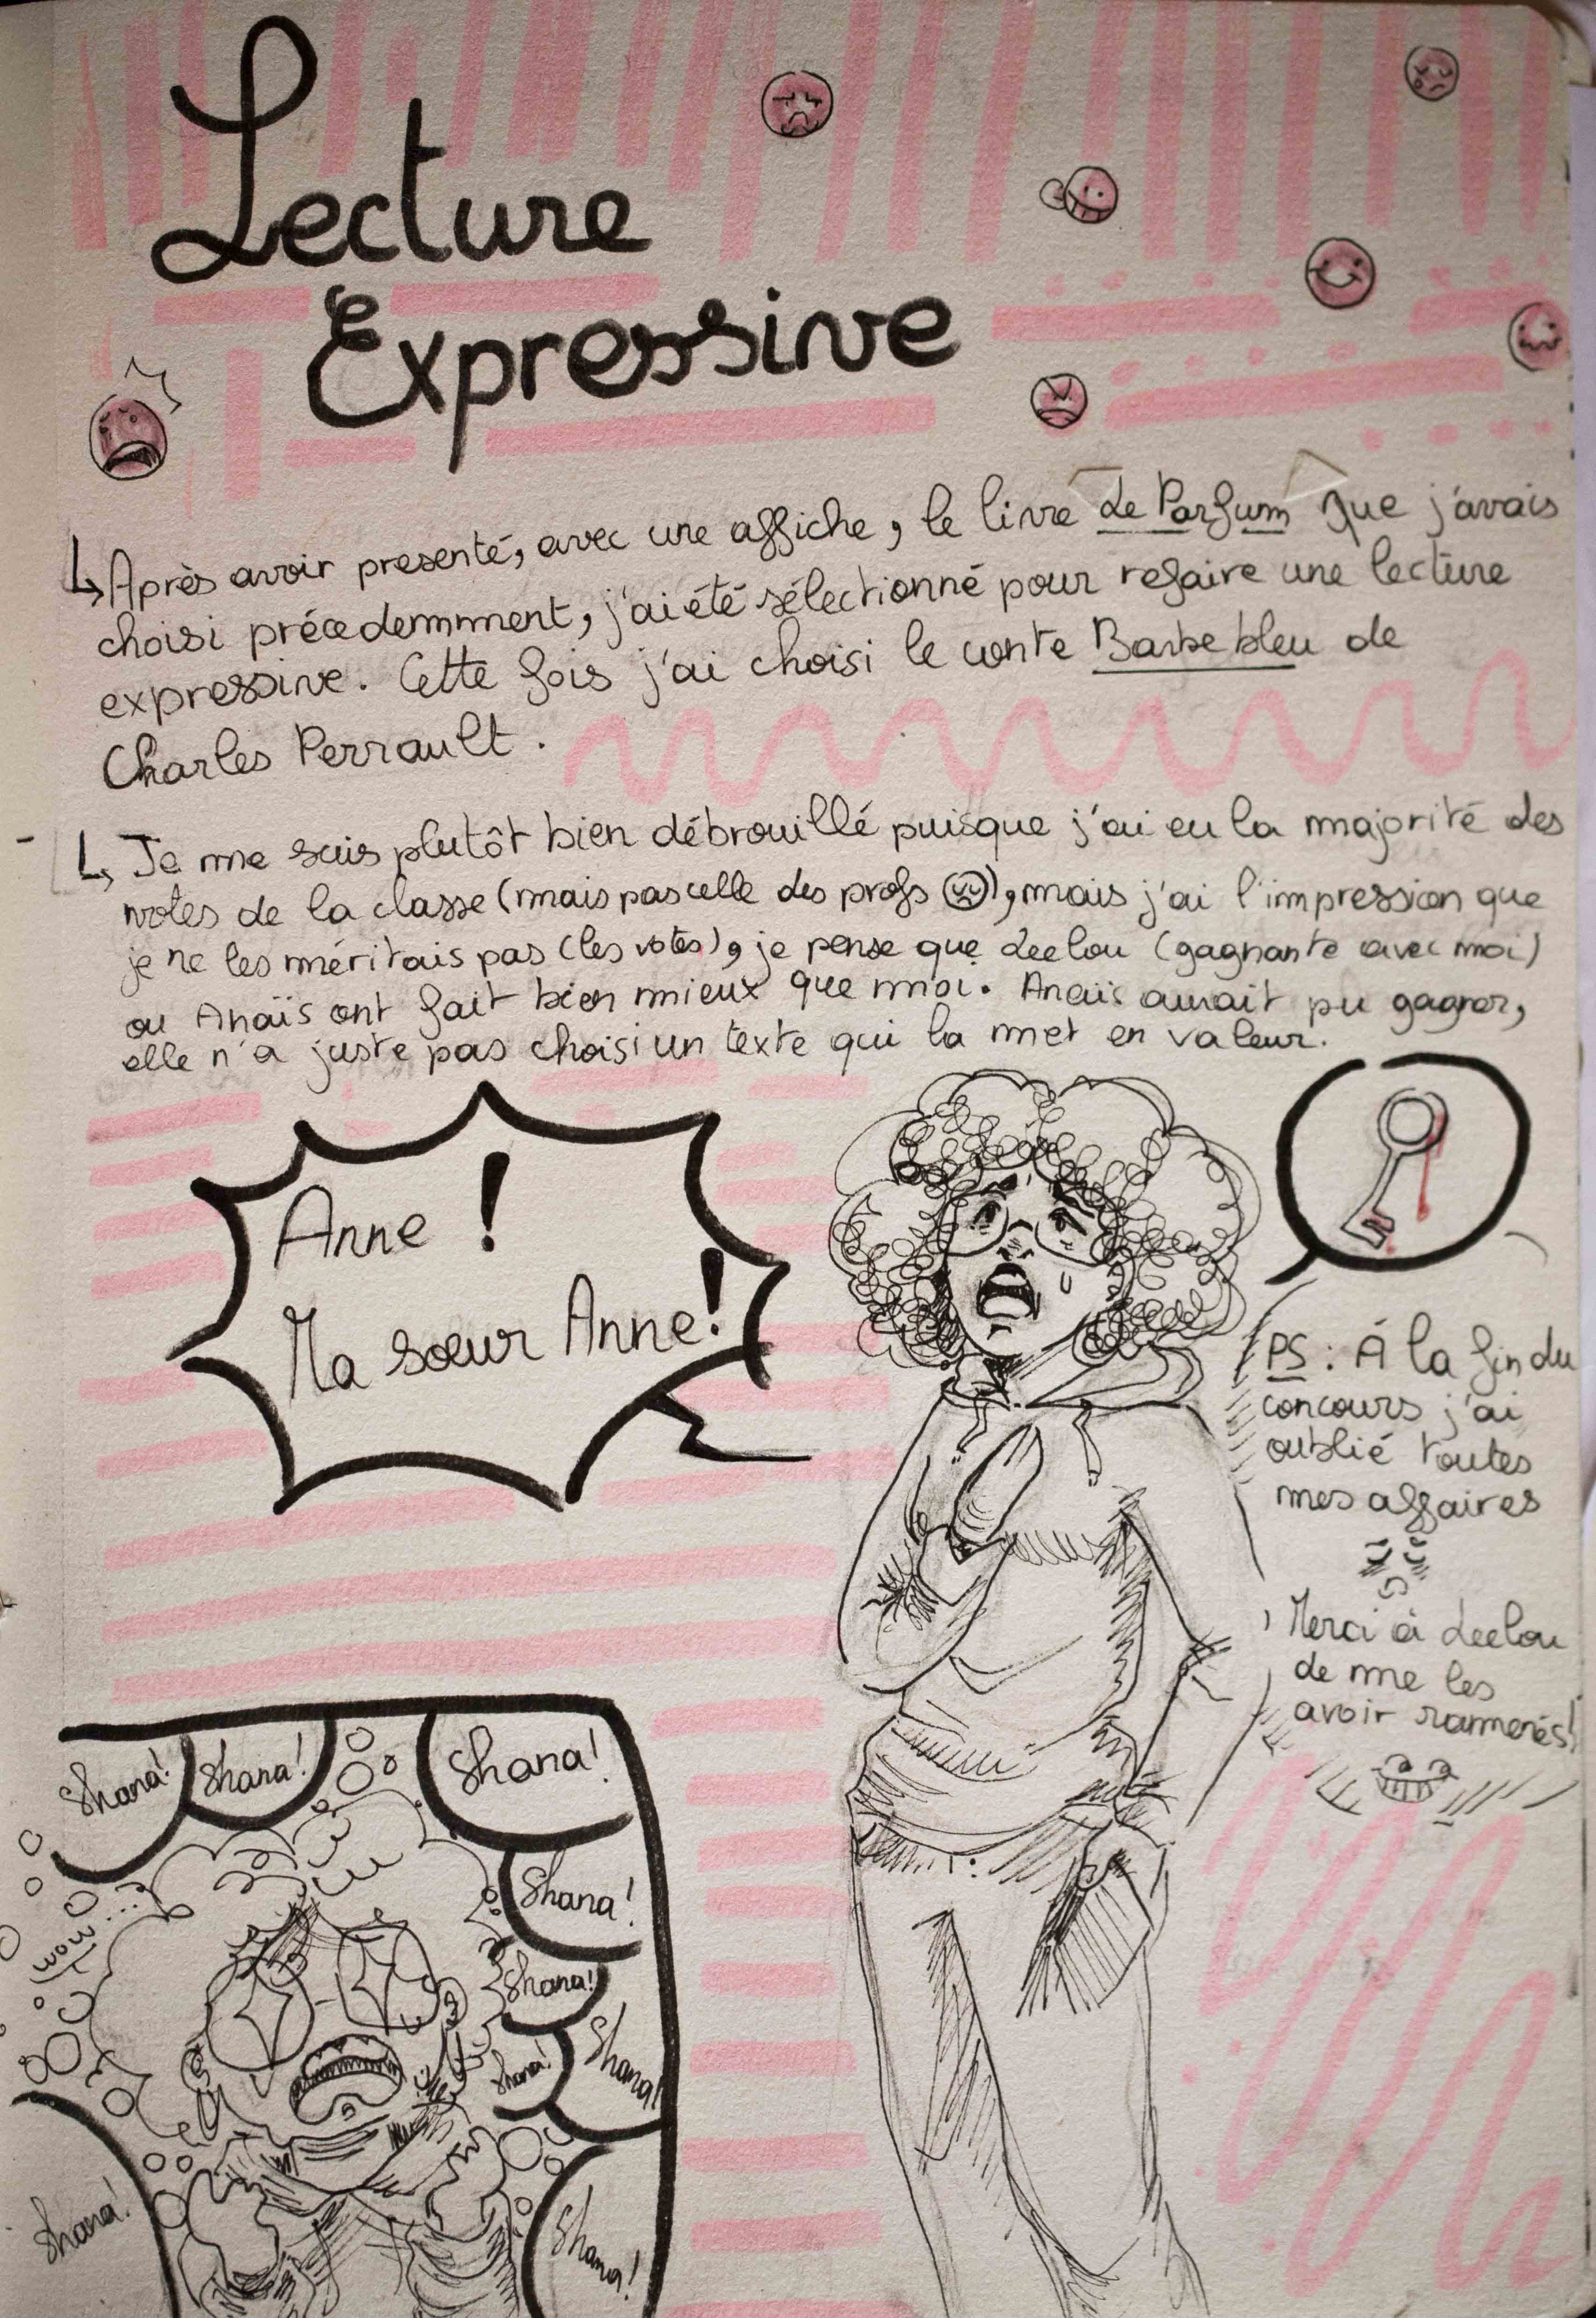 Lecture
Expressive
↳ Après avoir presenté, avec une affiche, le livre Le Parfum que j'avais
choisi précedemmment, j'ai été sélectionné pour refaire une lecture
expressive. Cette fois j'ai choisi le conte Barbe bleu de
Charles Perrault.
↳ Je me suis plutôt bien débrouillé puisque j'ai eu la majorité des
votes de la classe (mais pas celle des profs), mais j'ai l'impression que
je ne les méritais pas (les votes), je pense que Leelou (gagnante avec moi)
ou Anaïs ont fait bien mieux que moi. Anaïs aurait pu gagner,
elle n'a juste pas choisi un texte qui la met en valeur.
Anne !
Ma sœur Anne !
PS : À la fin du
concours j'ai
oublié toutes
mes affaires
Merci à Leelou
de me les
avoir ramenés !
Shana !
Shana !
Shana !
Shana !
Shana !
Shana !
Shana !
Shana !
Shana !